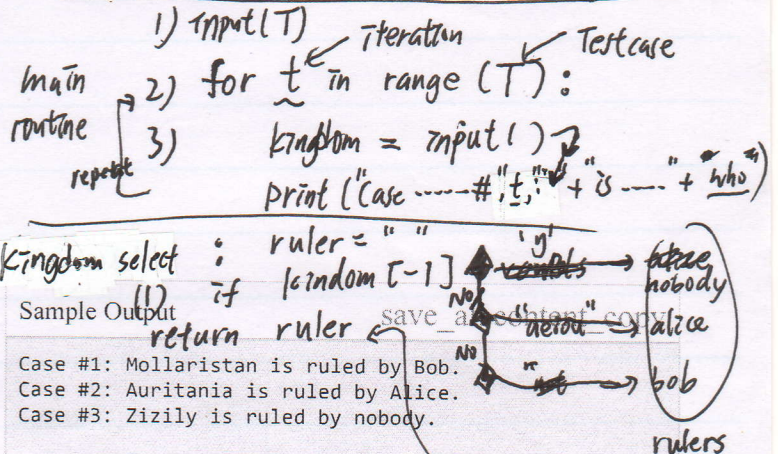 1) input(T)
iteration
Testcase
main routine
2) for t in range (T):
3) kingdom = input()
repeat
print ("Case ------ #", t, ":" + "is ....." + "who")
kingdom select : ruler = " "
(1) if kindom [-1]
'y'
nobody
No
"aeiou"
alice
No
bob
return ruler
rulers
Sample Output
save_as content_copy
Case #1: Mollaristan is ruled by Bob.
Case #2: Auritania is ruled by Alice.
Case #3: Zizily is ruled by nobody.